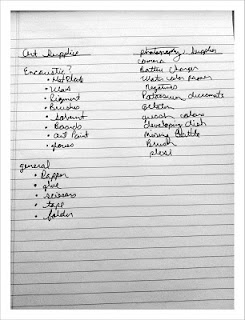 Art Supplies
Encaustic?
• Wax
• Pigment
• Brushes
• solvent
• Boards
• Art Paint
general
• Papper
• glue
• scissors
• tape
• folder
photography Supplies
camera
Battery Charger
Water color paper
Negatives
Potassium dicromate
geletin
guash colors
developing dish
Mixing Bottle
Brush
plexi